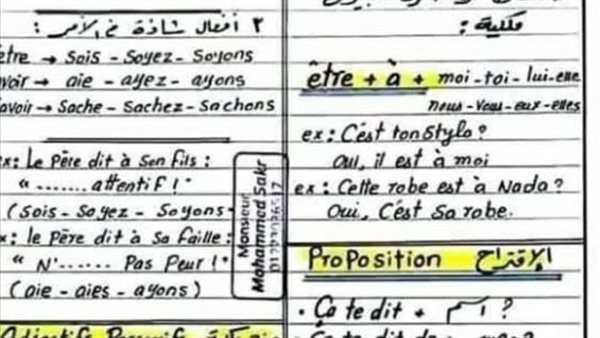 ٢ أفعال شاذة في الأمر :
être → Sois - Soyez - Soyons
avoir → aie - ayez - ayons
Savoir → Sache - Sachez - Sachons
ex: Le Père dit à Son fils :
" ....... attentif ! "
(Sois - Soyez - Soyons
ex: le Père dit à Sa Faille :
" N'...... Pas Peur ! "
(aie - aies - ayons)
Monsieur
Mohammed Sakr
ملكية :
être + à + moi - toi - lui - elle
nous - vous - eux - elles
ex : C'est ton Stylo ?
Oui, il est à moi
ex : Cette robe est à Nada ?
Oui, C'est Sa robe.
ProPosition الإقتراح
• Ça te dit + اسم ?